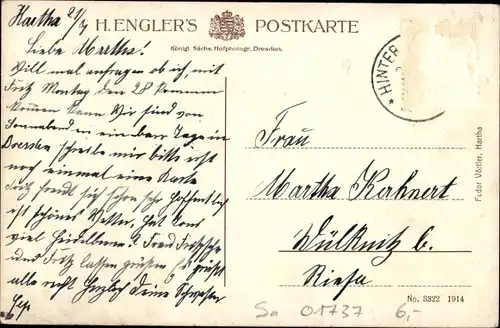 Hartha 21/7
H. ENGLER'S POSTKARTE
Königl. Sächs. Hofphotogr. Dresden.
Liebe Martha!
Will mal anfragen ob ich mit
Fritz Montag den 28 kommen
kommen kann. Wir sind von
Sonnabend in ein paar Tage in
Dresden schreibe mir bitte erst
noch einmal eine Karte
Fritz freut sich schon sehr hoffentlich
ist schönes Wetter. Hat
viel Heidelbeeren?
und Fritz lassen grüßen Es grüßt
alle recht herzlich Deine Schwester
HINTER
Frau
Martha Kerhnert
Wülknitz b.
Riesa
Fedor Vörtler, Hartha
No. 3322 1914
Sa 01737 6,-